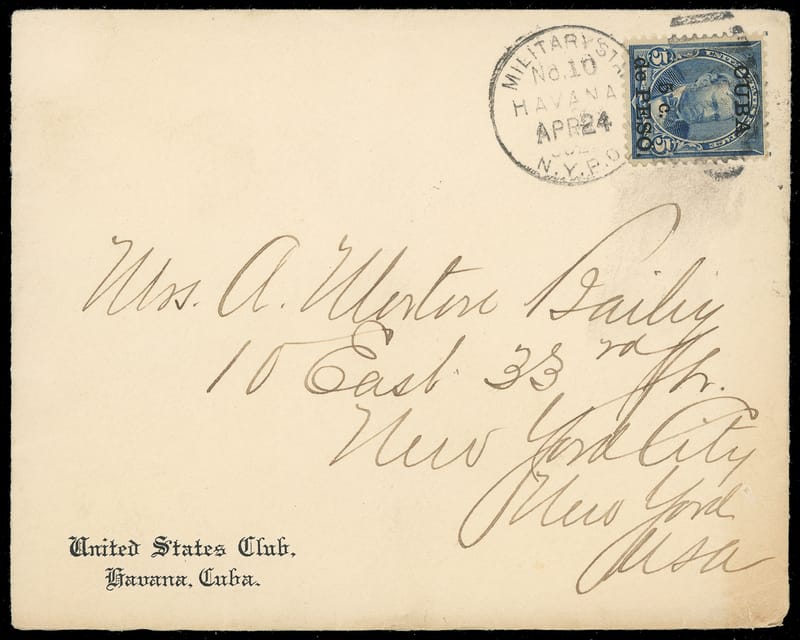 MILITARY STA
No. 10
HAVANA
APR 24
N.Y.P.O.
CUBA
5 c.
de PESO.
Mrs. A. Mertore Bailey
10 East 33rd St.
New York City
New York
USA
United States Club,
Havana, Cuba.